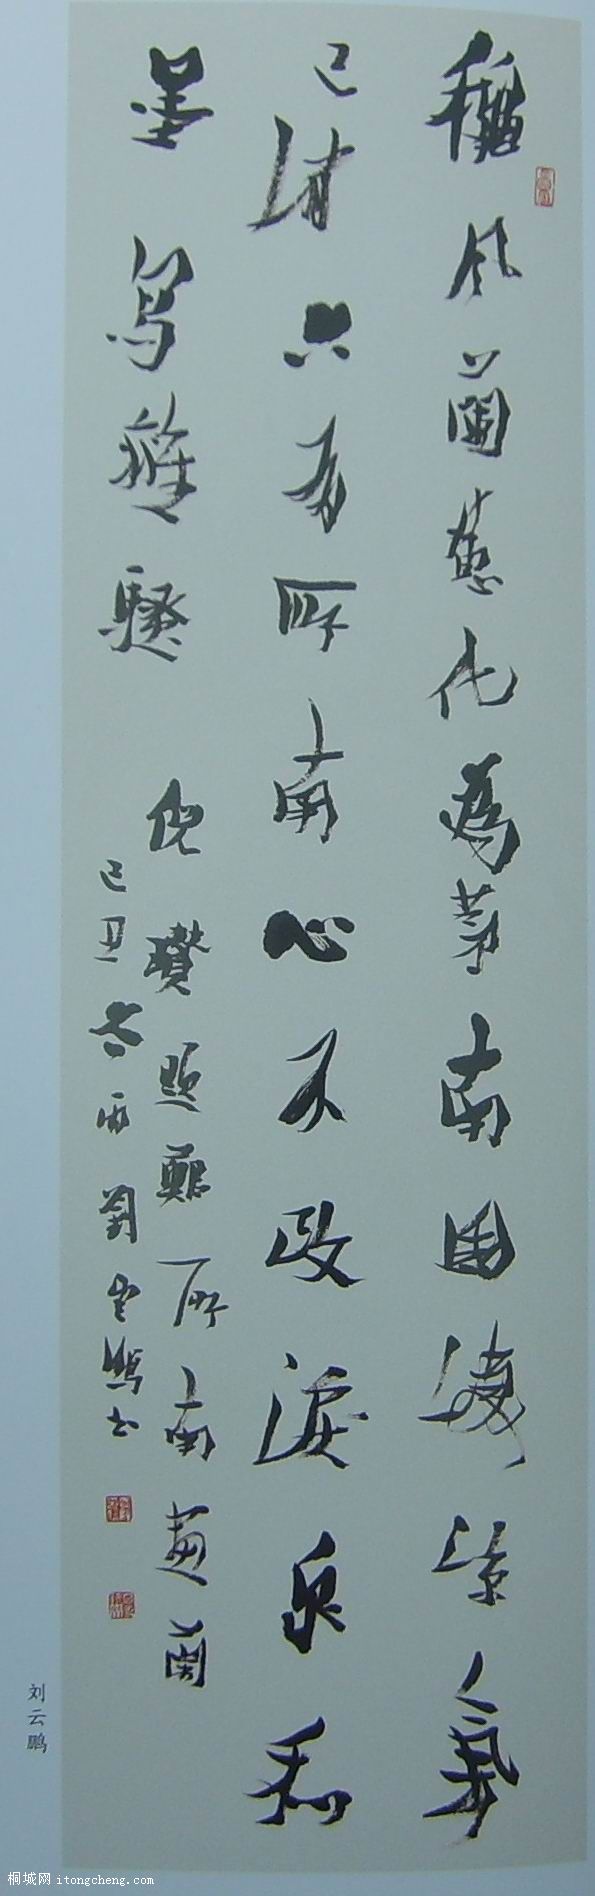 龝風蘭蕙化為茅南國淒涼氣
已消只有所南心不改淚泉和
墨寫離騷 倪瓚題鄭所南畫蘭
己丑冬雨劉雲鵬書
刘云鹏
桐城网 itongcheng.com